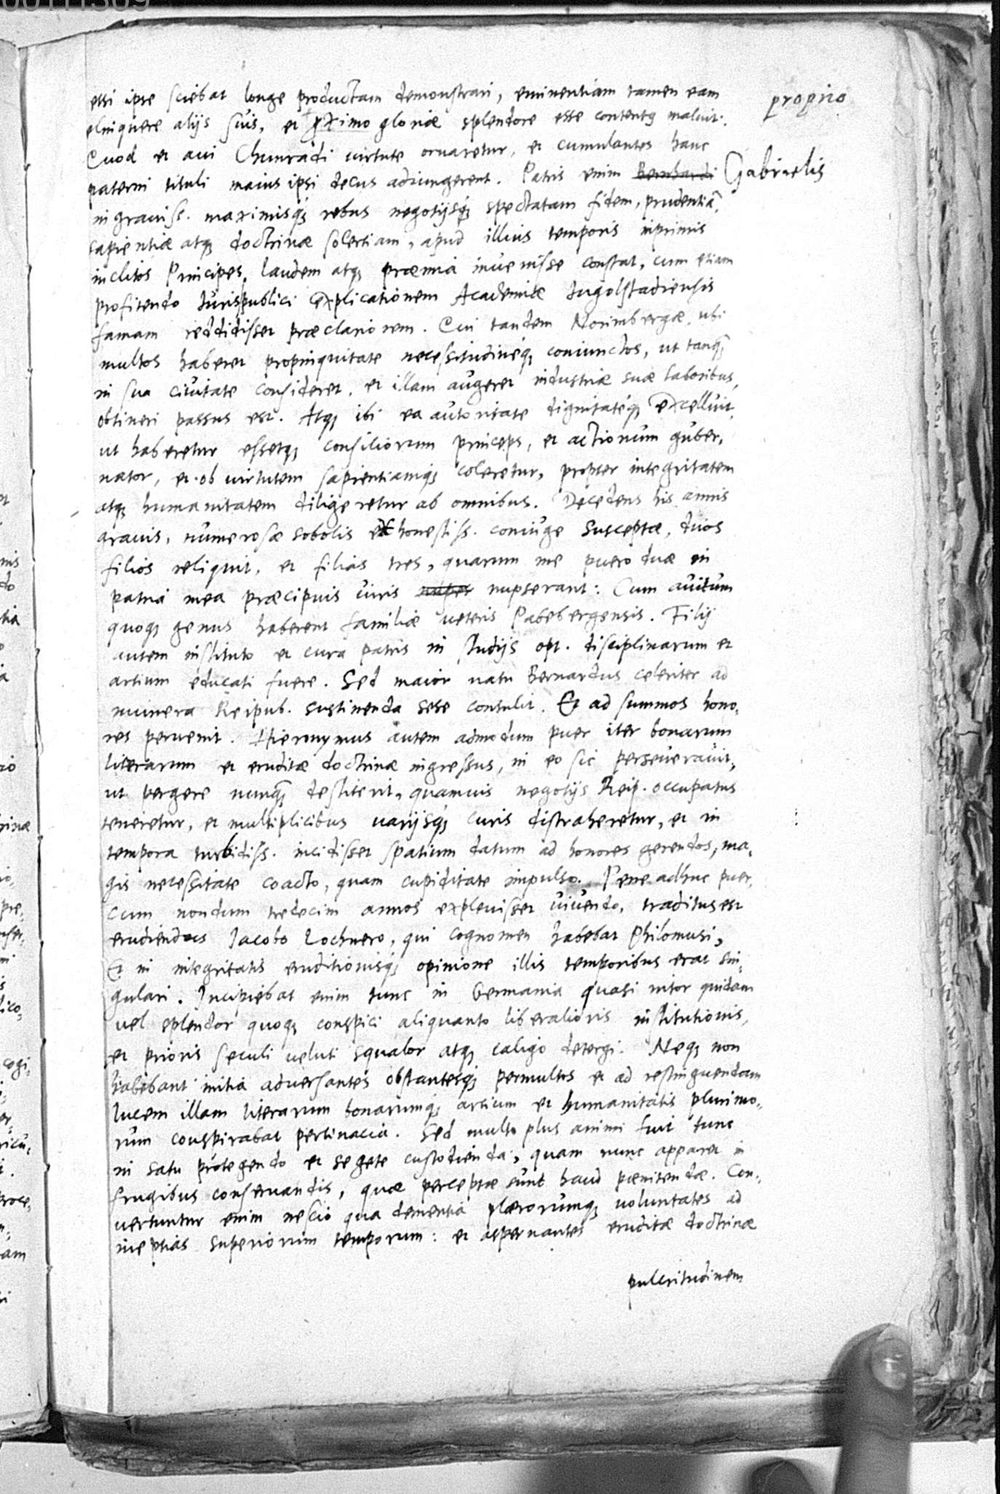 etsi ipse sciebat longe productam demonstrari, eminentiam tamen eam
relinquere alijs suis, et proximo gloriæ splendore esse contentq maluit.
proprio
Quod et aui Chunradi virtute ornaretur, et cumulantes hanc
paterni tituli maius ipsi decus adiungerent. Patris enim Bernhardi Gabrielis
in grauiss. maximisq, rebus negotijsq, spectatam fidem, prudentiã,
sapientiæ atq, doctrinæ solertiam, apud illius temporis inprimis
inclitos Principes, laudem atq, præmia inuenisse constat, cum etiam
profitendo Iurispublici explicationem Academiæ Ingolstadiensis
famam reddidisset præclariorem. Cui tandem Norimbergæ, ubi
multos haberet propinquitate necessitudineq, coniunctos, ut tanq,
in sua ciuitate consideret, et illam augeret industriæ suæ laboribus,
obtineri passus est. Atq, ibi ea autoritate dignitateq, excelluit,
ut haberetur essetq, consiliorum princeps, et actionum guber,
nator, et ob virtutem sapientiamq, coleretur, propter integritatem
atq, humanitatem diligeretur ab omnibus. Decedens his annis
grauis, numerosæ sobolis ex honestiss. coniuge susceptæ, duos
filios reliquit, et filias tres, quarum me puero duæ in
patria mea præcipuis viris nuper nupserant: Cum auitum
quoq, genus haberent familiæ veteris Pabebergensis. Filij
autem instituto et cura patris in studijs opt. disciplinarum et
artium educati fuere. Sed maior natu Bernardus celeriter ad
munera Reipub. sustinenda sese contulit. Et ad summos hono,
res peruenit. Hieronymus autem admodum puer iter bonarum
literarum et eruditæ doctrinæ ingressus, in eo sic perseuerauit,
ut vergere nunq, destiterit, quamuis negotijs Reip. occupatus
teneretur, et multiplicibus varijsq, curis distraheretur, et in
tempora turbidiss. incidisset spatium datum ad honores gerendos, ma,
gis necessitate coacto, quam cupiditate impulso. Pene adhuc puer,
cum nondum tredecim annos expleuisset viuendo, traditus est
erudiendus Iacobo Lochnero, qui cognomen habebat Philomusi,
Et in integritatis eruditionisq, opinione illis temporibus erat sin,
gulari. Incipiebat enim tunc in Germania quasi nitor quidam
vel splendor quoq, conspici aliquanto liberalioris institutionis,
et prioris seculi veluti squalor atq, caligo detergi. Neq, non
habebant initia aduersantes obstantesq, permultos et ad restinguendam
lucem illam literarum bonarumq, artium et humanitatis plurimo,
rum conspirabat pertinacia. Sed multo plus animi fuit tunc
in satu protegendo et segete custodienda, quam nunc apparet in
frugibus conseruandis, quæ perceptæ sunt haud pænitendæ. Con,
uertuntur enim nescio qua dementia plærorumq, voluntates ad
ineptias superiorum temporum: et aspernantes eruditæ doctrinæ
pulcritudinem